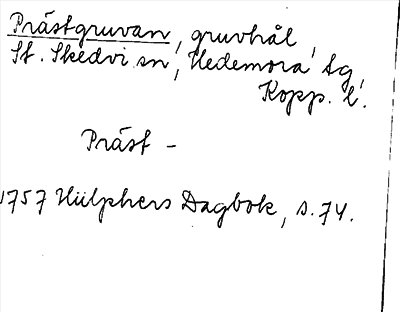 Prästgruvan, gruvhål,
St. Skedvi sn, Hedemora tg,
Kopp. l.
Präst -
1757 Hülphers Dagbok, s. 74.